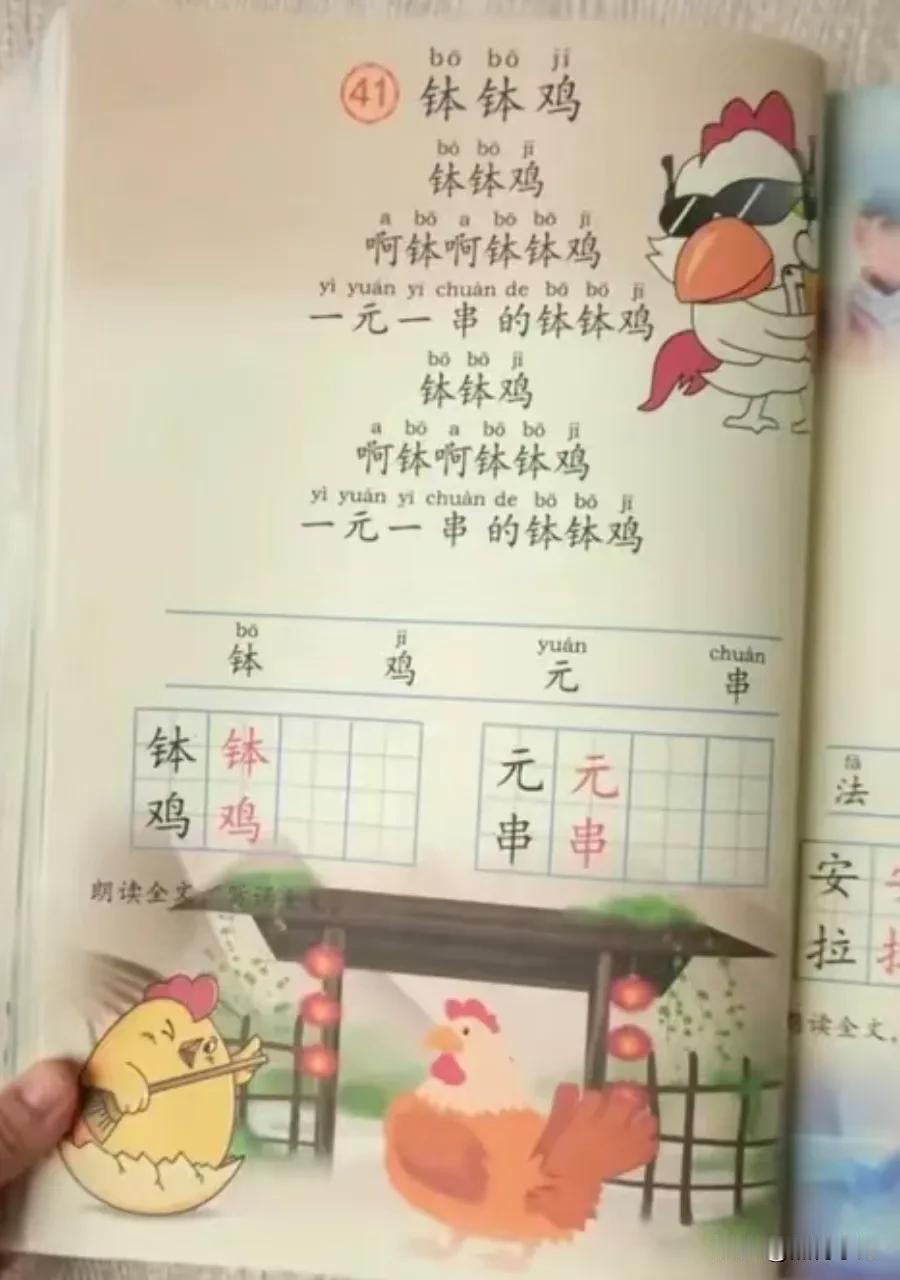 bō bō jī
41 钵钵鸡
bō bō jī
钵钵鸡
a bō a bō bō jī
啊钵啊钵钵鸡
yì yuán yí chuàn de bō bō jī
一元一串的钵钵鸡
bō bō jī
钵钵鸡
a bō a bō bō jī
啊钵啊钵钵鸡
yì yuán yí chuàn de bō bō jī
一元一串的钵钵鸡
bō jī yuán chuàn
钵 鸡 元 串
钵 钵 元 元
鸡 鸡 串 串
朗读全文,背诵全文。
fǎ
法
安
拉
读全文,